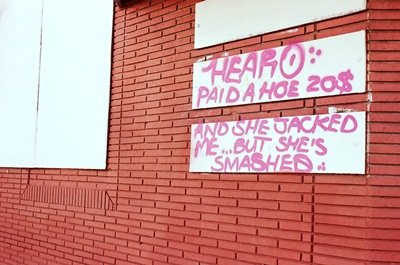 HEARO::
PAID A HOE 20$
AND SHE JACKED
ME...BUT SHE'S
SMASHED::